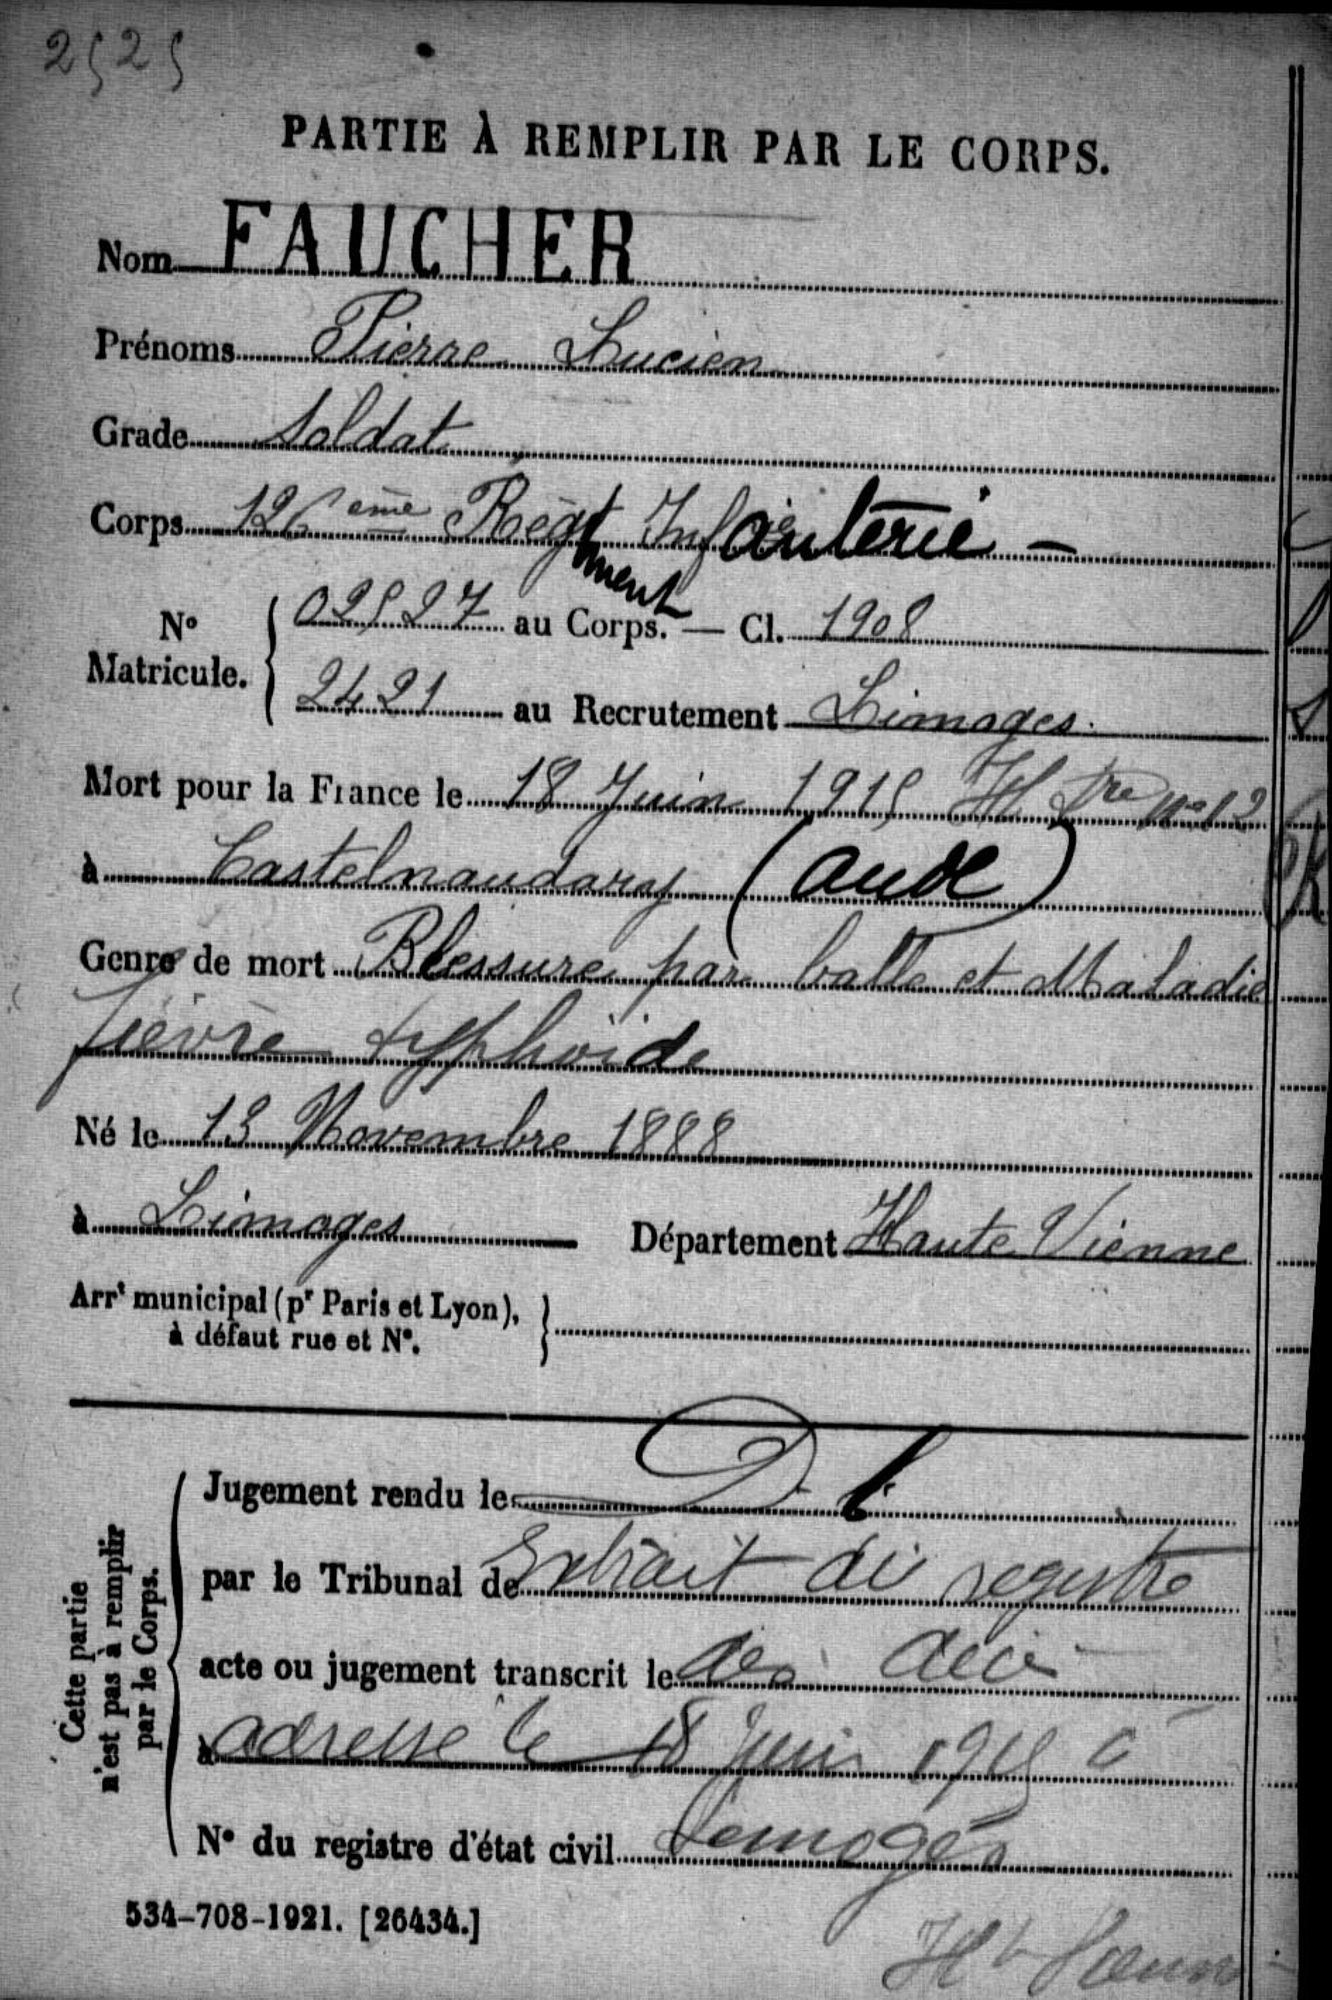 2525
PARTIE À REMPLIR PAR LE CORPS.
Nom FAUCHER
Prénoms Pierre Lucien
Grade Soldat
Corps 126ème Régiment Infanterie -
N° Matricule. 02527 au Corps. — Cl. 1908
2421 au Recrutement Limoges.
Mort pour la France le 18 Juin 1915 Hre n° 12
à Castelnaudary (Aude)
Genre de mort Blessure par balle et Maladie
fièvre typhoïde
Né le 13 Novembre 1888
à Limoges Département Haute Vienne
Arrt municipal (pr Paris et Lyon),
à défaut rue et N°.
Cette partie
n'est pas à remplir
par le Corps.
Jugement rendu le
par le Tribunal de Extrait du registre
acte ou jugement transcrit le des décès
à adressé le 18 Juin 1915 à
N° du registre d'état civil Limoges
534-708-1921. [26434.]
Hte Vienne